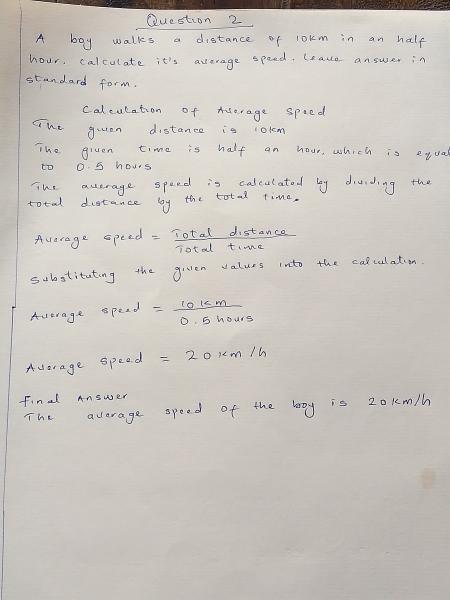 Question 2
A boy walks a distance of 10km in an half
hour. Calculate it's average speed. Leave answer in
standard form.
Calculation of Average speed
The given distance is 10km
The given time is half an hour, which is equal
to 0.5 hours
The average speed is calculated by dividing the
total distance by the total time.
Average speed = Total distance
Total time
Substituting the given values into the calculation.
Average speed = 10km
0.5 hours
Average speed = 20km/h
Final Answer
The average speed of the boy is 20km/h